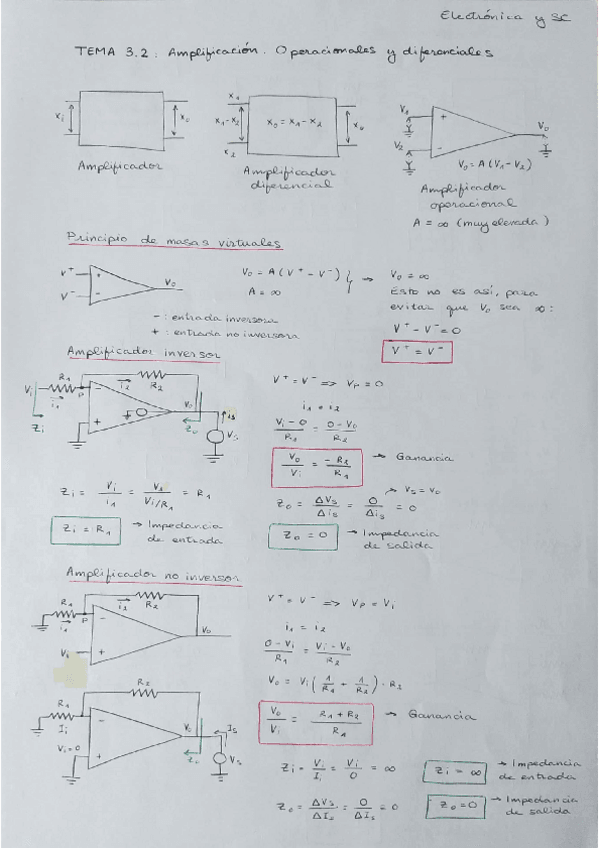 Electrónica y SC
TEMA 3.2: Amplificación. Operacionales y diferenciales
Xi
Xo
Amplificador
X1
X1-X2
X2
Xo = X1 - X2
Xo
Amplificador
diferencial
V1
V2
+
-
Vo
Vo = A (V1 - V2)
Amplificador
operacional
A = ∞ (muy elevada)
Principio de masas virtuales
V+
V-
+
-
Vo
Vo = A (V+ - V-)
A = ∞
→ Vo = ∞
Esto no es así, para
evitar que Vo sea ∞:
V+ - V- = 0
V+ = V-
- : entrada inversora
+ : entrada no inversora
Amplificador inversor
Vi
R1
i1
P
i2
R2
-
+
Vo
Zi
Zo
is
Vs
V+ = V- => Vp = 0
i1 = i2
Vi - 0 / R1 = 0 - Vo / R2
Vo / Vi = -R2 / R1 → Ganancia
Zi = Vi / i1 = V1 / Vi/R1 = R1
Zi = R1 → Impedancia
de entrada
→ Vs = Vo
Zo = ΔVs / Δis = 0 / Δis = 0
Zo = 0 → Impedancia
de salida
Amplificador no inversor
R1
i1
P
i2
R2
-
Vi
Vo
V+ = V- => Vp = Vi
i1 = i2
0 - Vi / R1 = Vi - Vo / R2
Vo = Vi ( 1 / R1 + 1 / R2 ) · R2
Vo / Vi = R1 + R2 / R1 → Ganancia
R1
Ii
R2
Vi = 0
-
+
Vo
Zo
Is
Vs
Zi = Vi / Ii = Vi / 0 = ∞
Zi = ∞ → Impedancia
de entrada
Zo = ΔVs / ΔIs = 0 / ΔIs = 0
Zo = 0 → Impedancia
de salida